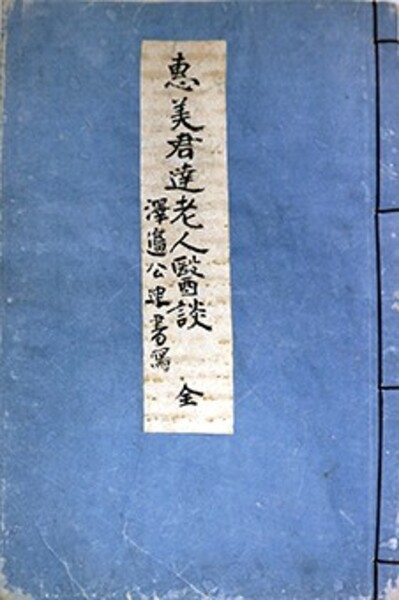 惠美君達老人醫談 全
澤邉公建書寫